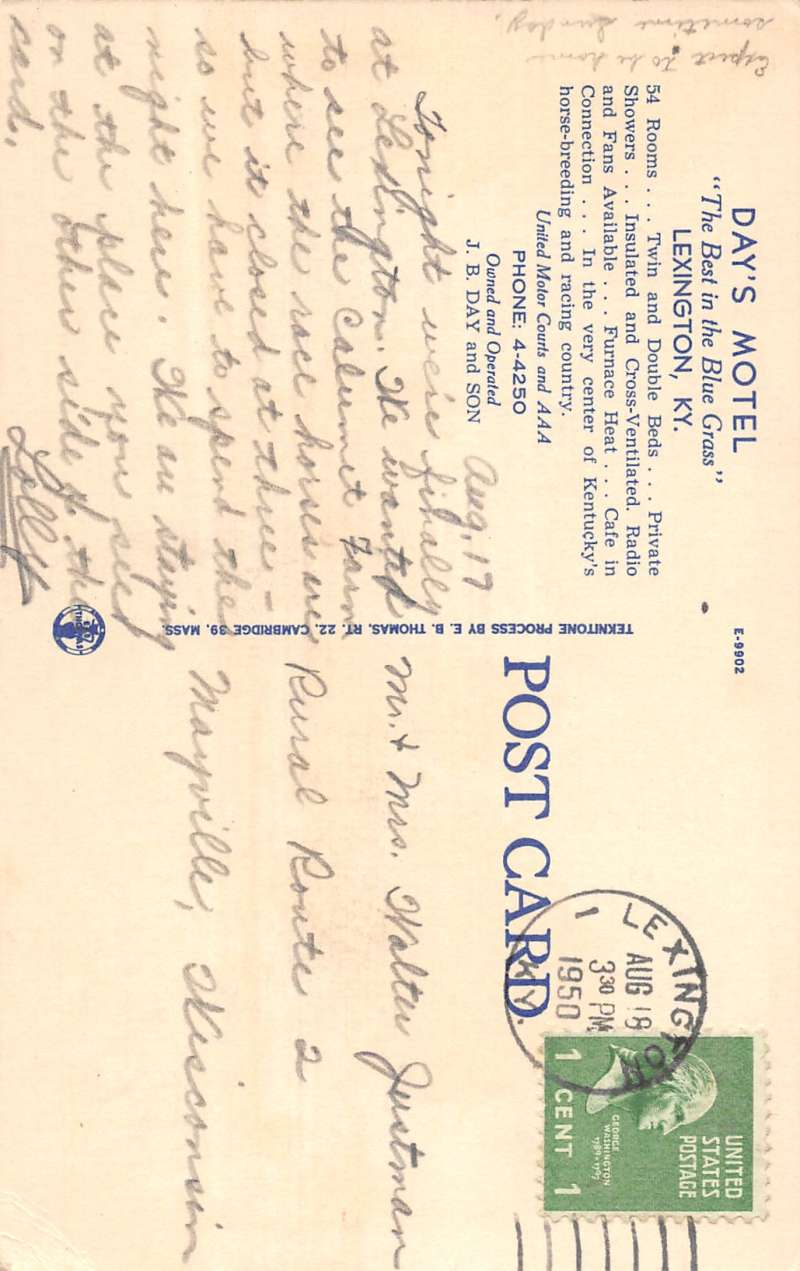 Expect to be home
sometime Sunday.
DAY'S MOTEL
"The Best in the Blue Grass"
LEXINGTON, KY.
54 Rooms . . . Twin and Double Beds . . . Private
Showers . . . Insulated and Cross-Ventilated. Radio
and Fans Available . . . Furnace Heat . . . Cafe in
Connection . . . In the very center of Kentucky's
horse-breeding and racing country.
United Motor Courts and AAA
PHONE: 4-4250
Owned and Operated
J. B. DAY and SON
Aug. 17
Tonight we're finally
at Lexington. We wanted
to see the Calumet Farm
where the race horses are
but it closed at three -
so we have to spend the
night here. We are staying
at the place you see
on the other side of the
card.
Lolly
E-9902
TEKNITONE PROCESS BY E. B. THOMAS, RT. 22, CAMBRIDGE 39, MASS.
EBT
THOMAS
POST CARD
LEXINGTON
1
AUG 18
3 30 PM
1950
KY.
UNITED
STATES
POSTAGE
GEORGE
WASHINGTON
1789-1797
1 CENT 1
Mr. & Mrs. Walter Justman
Rural Route 2
Mayville, Wisconsin